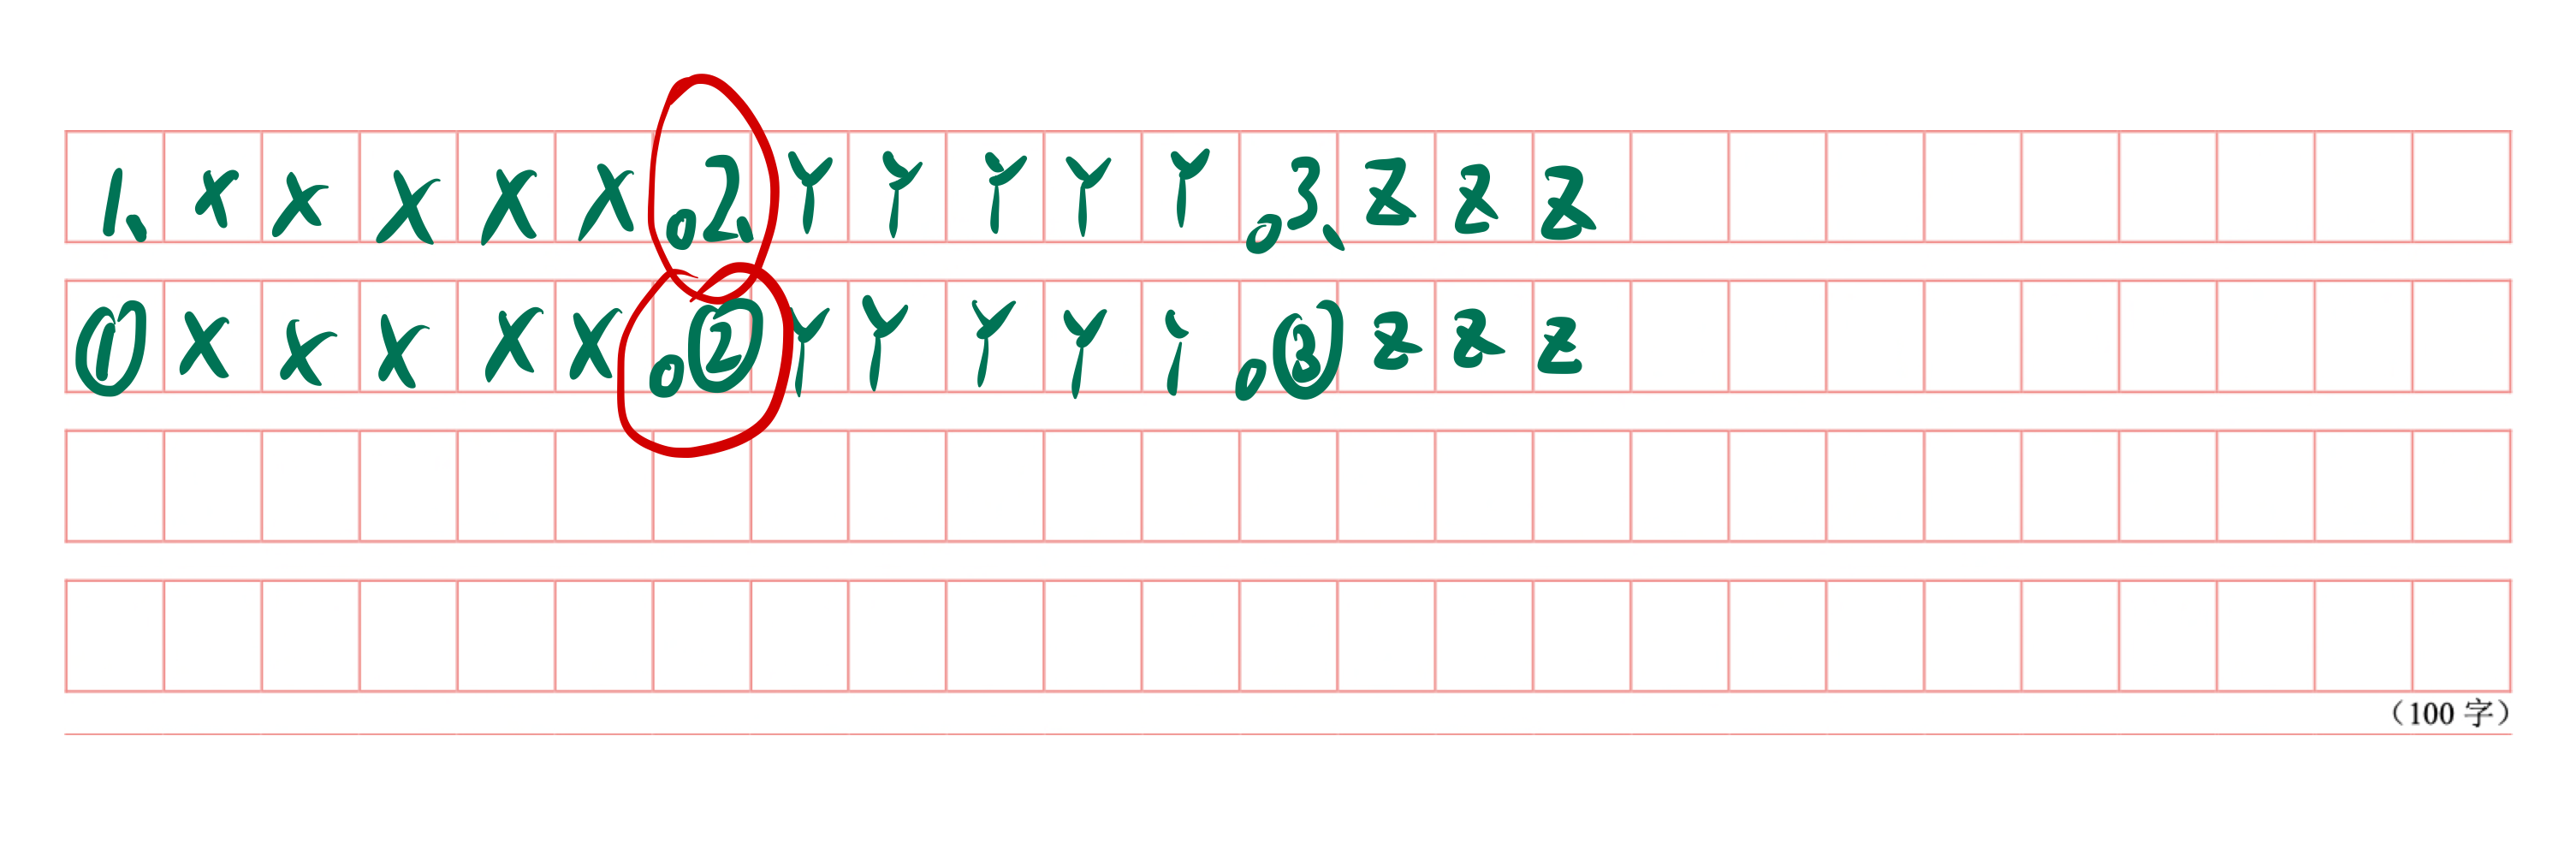 1、xxxxx。2、YYYYY。3、zzz
①xxxxx。②YYYYY。③zzz
(100 字)